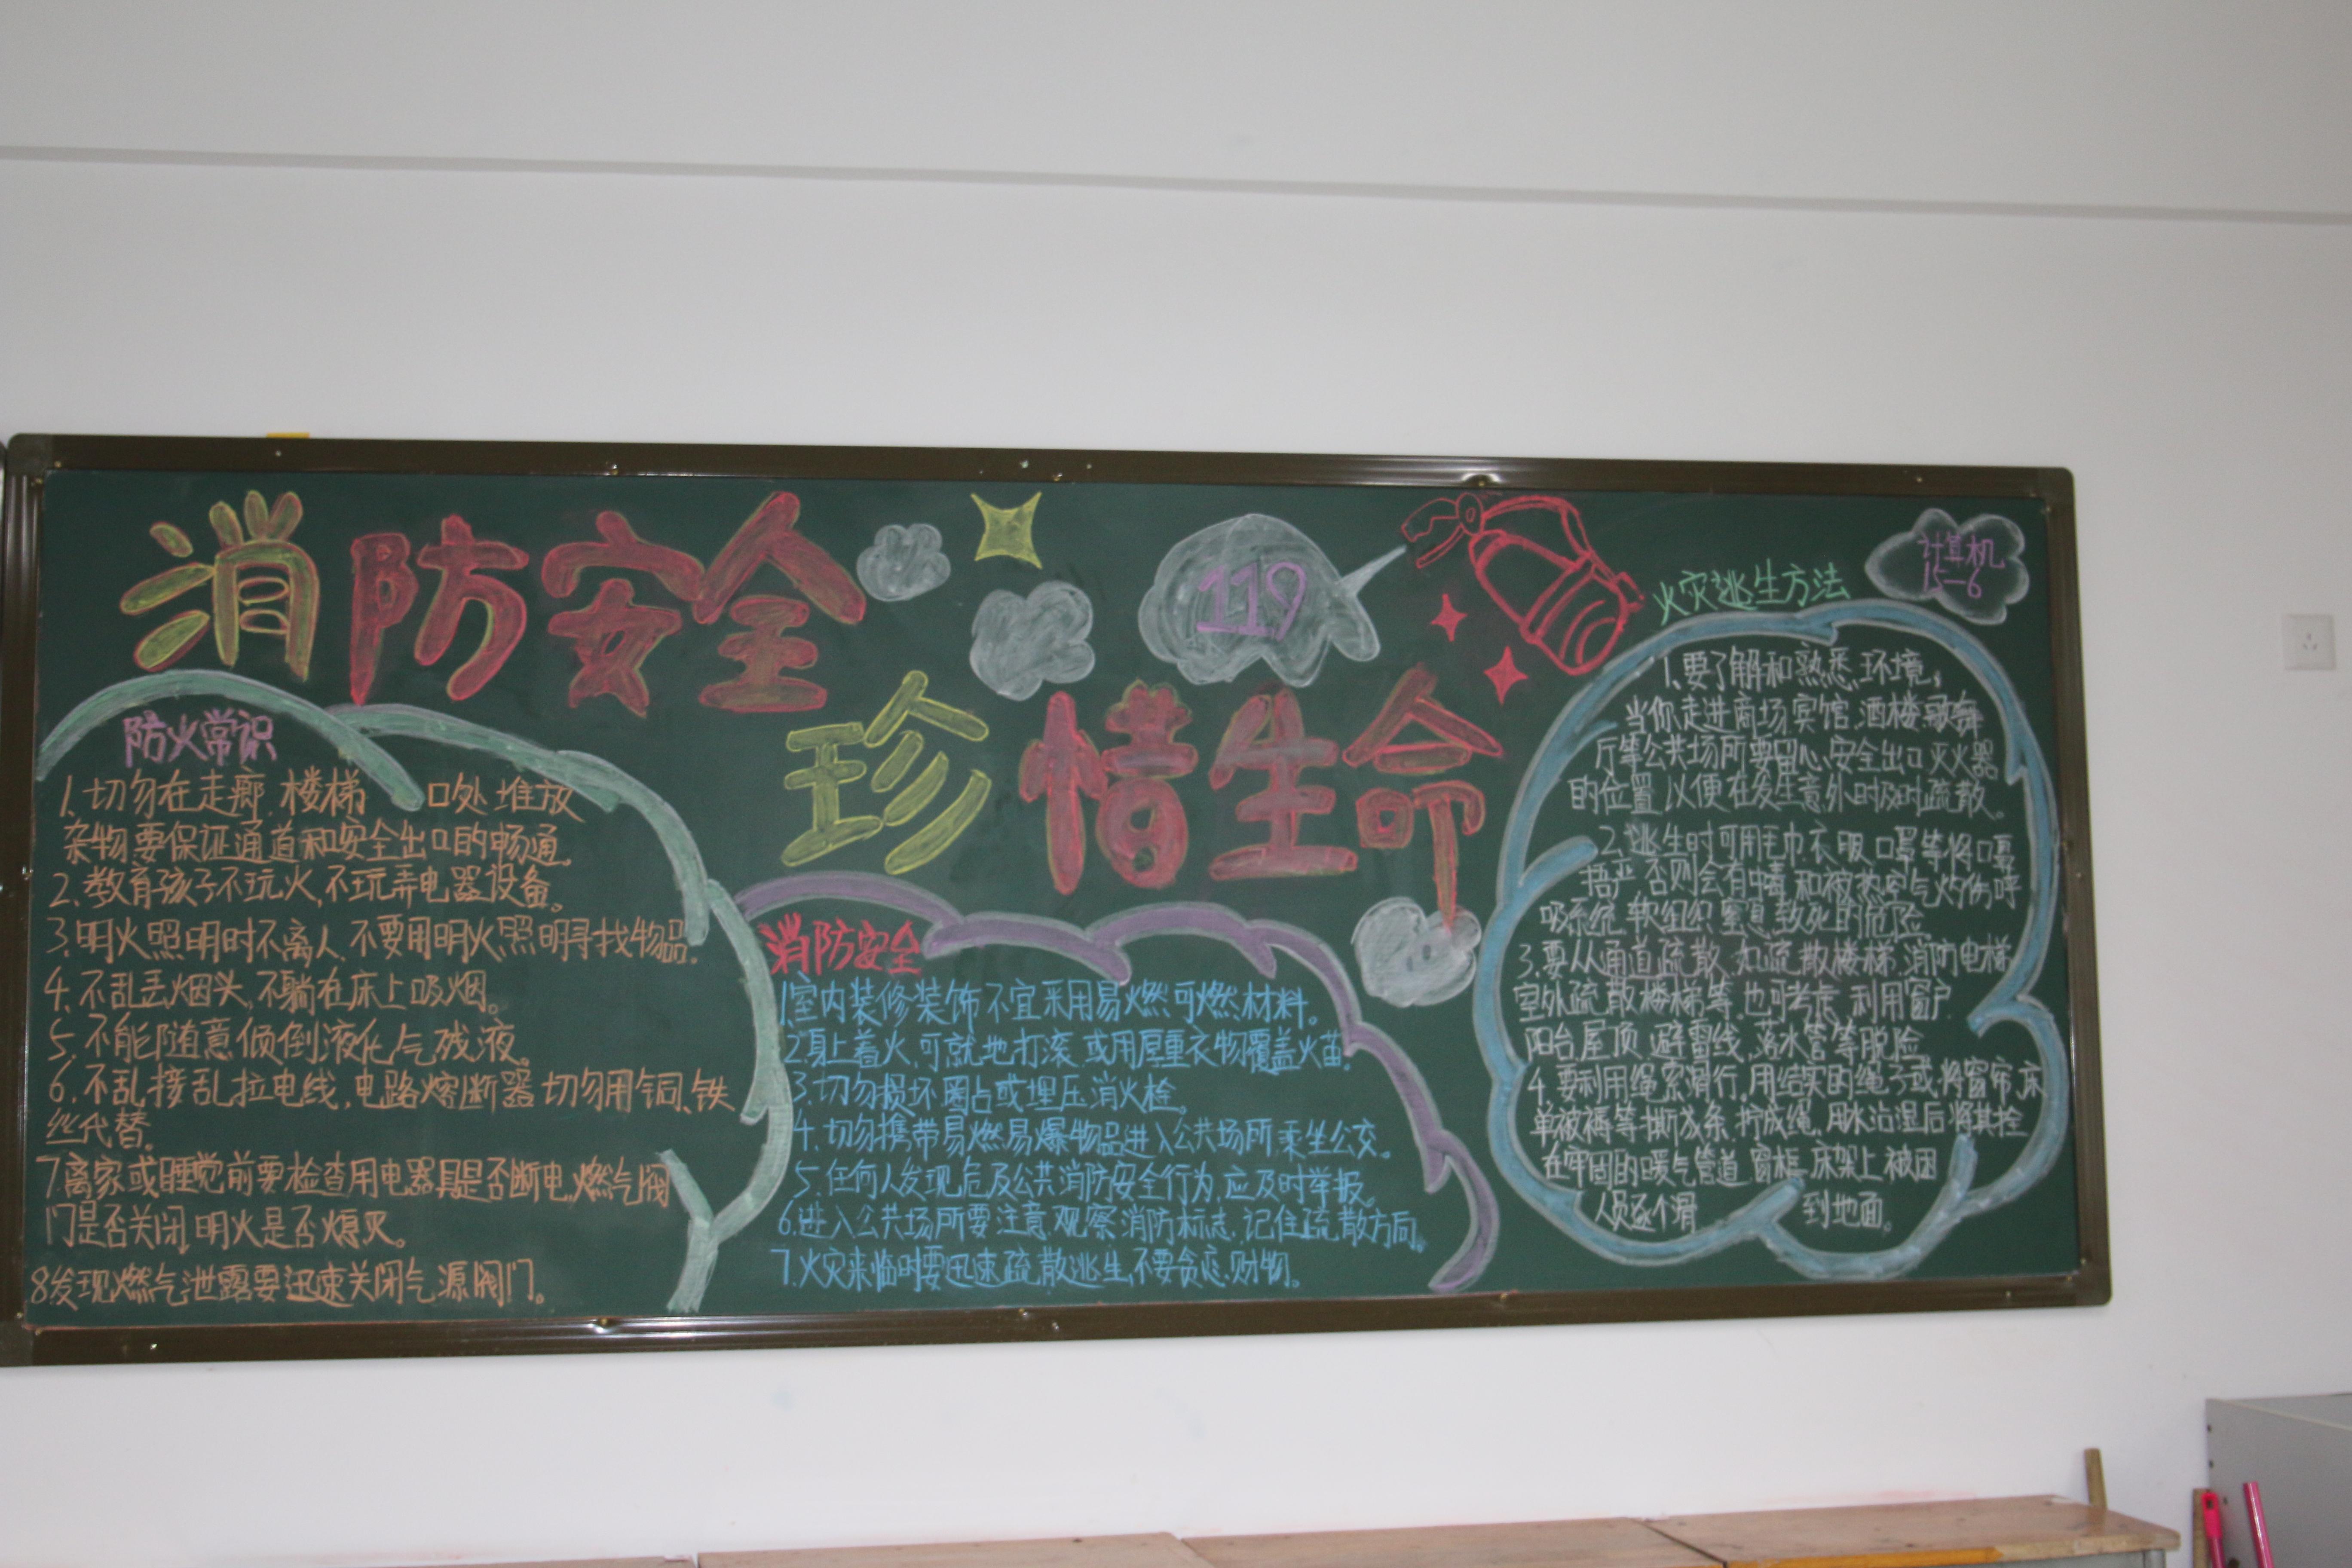 消防安全
珍惜生命
119
计算机
15—6
防火常识
1.切勿在走廊.楼梯 口处堆放
杂物要保证通道和安全出口的畅通。
2.教育孩子不玩火,不玩弄电器设备。
3.明火照明时不离人.不要用明火照明寻找物品。
4.不乱丢烟头,不躺在床上吸烟。
5.不能随意倾倒液化气残液。
6.不乱接乱拉电线.电路熔断器切勿用铜、铁
丝代替。
7.离家或睡觉前要检查用电器具是否断电.燃气阀
门是否关闭,明火是否熄灭。
8发现燃气泄露要迅速关闭气源阀门。
消防安全
1.室内装修装饰不宜采用易燃可燃材料。
2.身上着火,可就地打滚.或用厚重衣物覆盖火苗。
3.切勿损坏圈占或埋压消火栓。
4.切勿携带易燃易爆物品进入公共场所乘坐公交。
5.任何人发现危及公共消防安全行为,应及时举报。
6.进入公共场所要注意观察消防标志.记住疏散方向。
7.火灾来临时要迅速疏散逃生,不要贪恋财物。
火灾逃生方法
1、要了解和熟悉环境,
当你走进商场宾馆.酒楼歌舞
厅等公共场所要留心安全出口灭火器
的位置以便在发生意外时及时疏散。
2.逃生时可用毛巾衣服口罩等将口鼻
捂严否则会有中毒和被热空气灼伤呼
吸系统软组织窒息致死的危险
3.要从通道疏散.如疏散楼梯.消防电梯
室外疏散楼梯等.也可考虑利用窗户.
阳台屋顶避雷线.落水管等脱险
4.要利用绳索滑行.用结实的绳子或将窗帘.床
单被褥等撕成条.拧成绳.用水沾湿后将其拴
在牢固的暖气管道窗框.床架上被困
人员逐个滑 到地面。